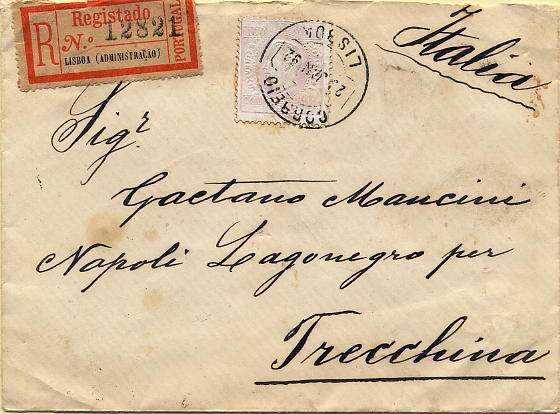 Registado
R N.º 12821
LISBOA (ADMINISTRAÇÃO)
PORTUGAL
CORREIO
LISBOA
92
Italia
Sigr
Gaetano Mancini
Napoli Lagonegro per
Trecchina